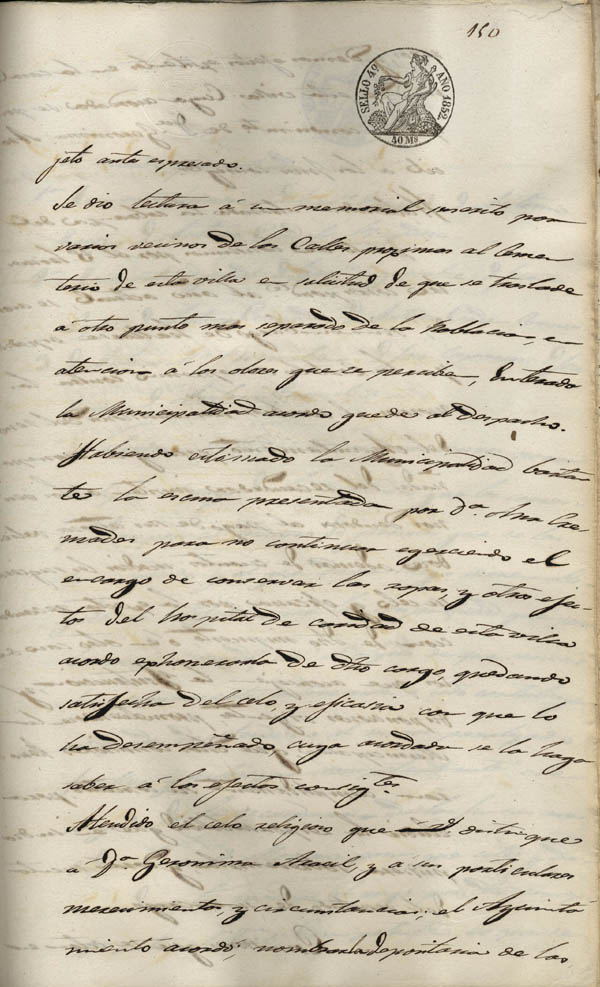 150
SELLO 4º AÑO 1852.
40 Ms
jeto antes espresado.
Se dio lectura á un memorial suscrito por
varios vecinos de las Calles proximas al Cemen
terio de esta villa en solicitud de que se traslade
á otro punto mas separado de la Poblacion, en
atencion á los olores que se percibe, Enterado
la Municipalidad acordo quede al Despacho.
Habiendo estimado la Municipalidad bastan
te la escusa presentada por Dª.
para no continuar egerciendo el
encargo de conservar las ropas, y otros efec-
tos del hospital de caridad de esta villa
acordo exhonerarla de dho cargo, quedando
satisfecha del celo, y eficasia con que lo
ha desempeñado, cuya acordada se la haga
saber á los efectos consigtes.
Atendido el celo religioso que distingue
a Dª. Geronima Aracil, y a sus particulares
merecimientos, y circunstancias; el Ayunta
miento acordó; nombrarla depositaria de las